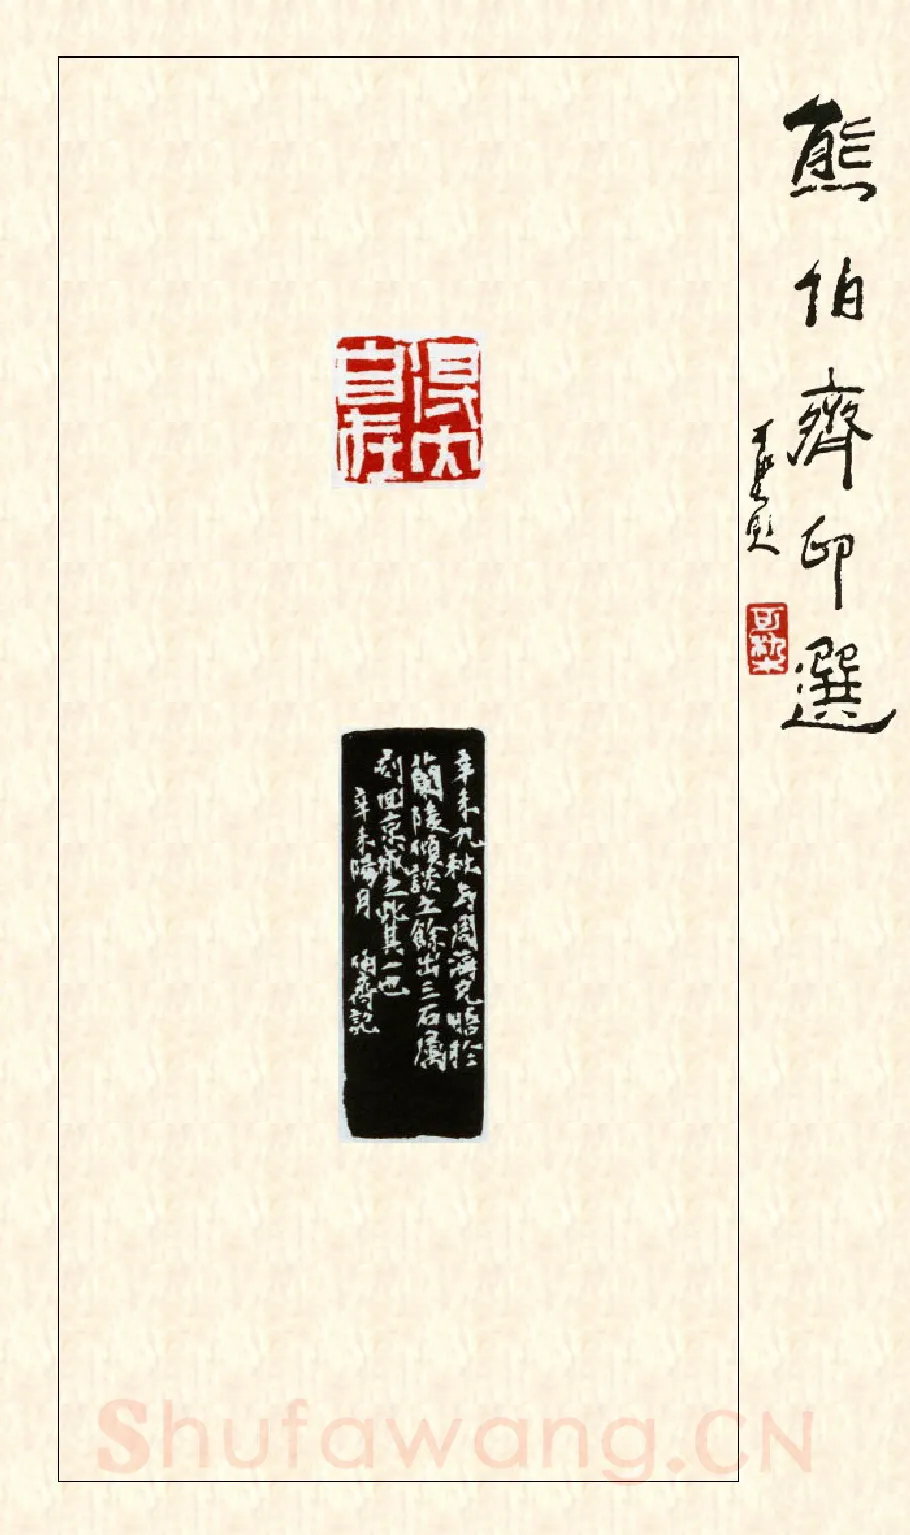 熊伯齊印選
得大自在
辛未九秋与周濤兄晤於
蘭陵傾談之餘出三石属
刻回京成之此其一也
辛未陽月 伯齊記
Shufawang.CN